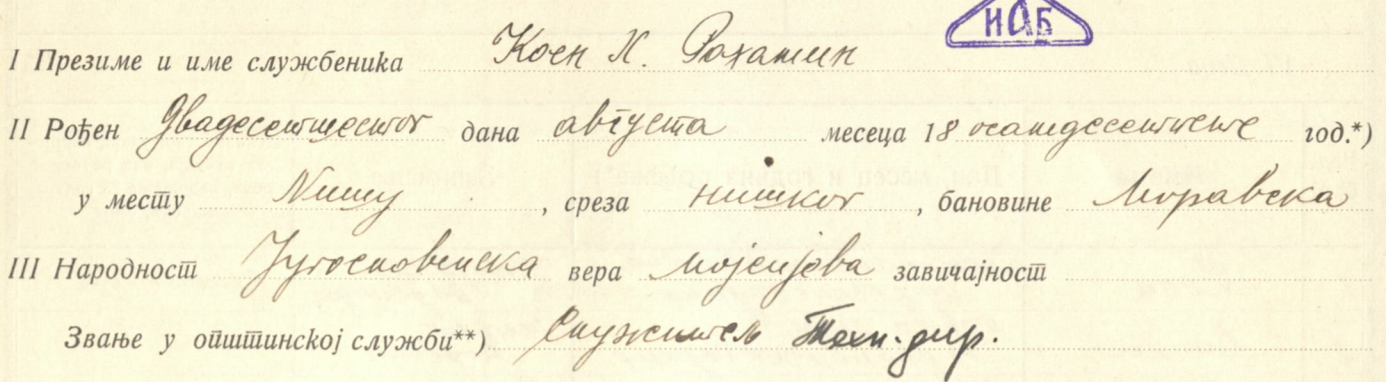 ИАБ
I Презиме и име службеника Коен Х. Рахамин
II Рођен Двадесетшестог дана августа месеца 18 осамдесетпете год.*)
у месту Нишу, среза нишког, бановине Моравска
III Народност Југословенска вера мојсијева завичајност
Звање у општинској служби**) Служитељ Техн. дир.